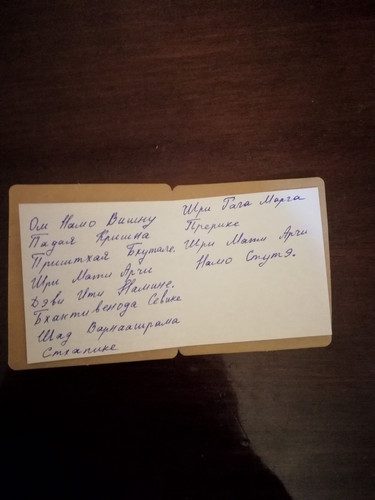 Ом Намо Вишну
Падая Кришна
Приштхая Бхутале.
Шри Мати Арчи
Дэви Ити Намине.
Бхактивенода Севике
Шад Варнаашрама
Стхапике
Шри Гага Марга
Прерике
Шри Мати Арчи
Намо Стутэ.